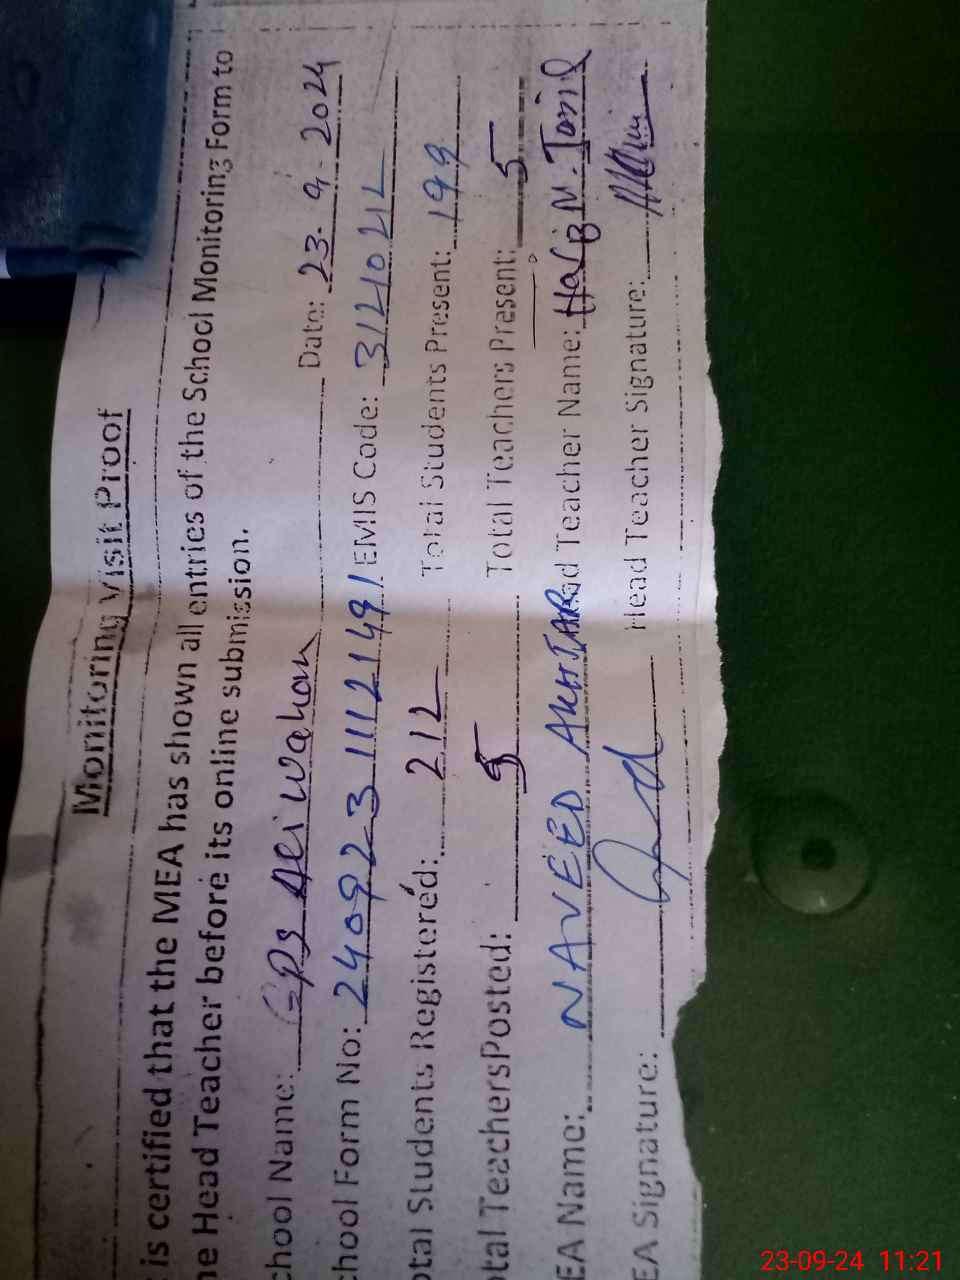 Monitoring Visit Proof
is certified that the MEA has shown all entries of the School Monitoring Form to
he Head Teacher before its online submission.
chool Name: GPS Wahan Date: 23-9-2024
chool Form No: 240923111212149 EMIS Code:
otal Students Registered: 212 Total Students Present: 199
otal TeachersPosted: 5 Total Teachers Present: 5
EA Name: NAVEED AKHTAR ad Teacher Name: M.
EA Signature: Head Teacher Signature:
23-09-24 11:21